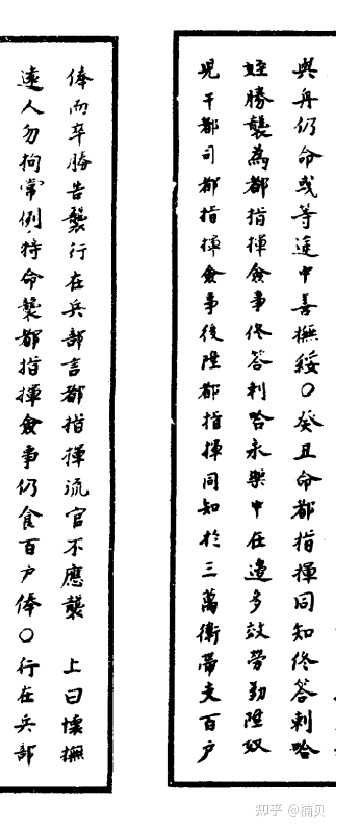 與舟仍命或等途中善撫綏〇癸丑命都指揮同知佟答剌哈
姪勝襲為都指揮僉事佟答剌哈永樂中在邊多效勞勤陞奴
児干都司都指揮僉事後陞都指揮同知於三萬衛帶支百户
俸而卒勝告襲行在兵部言都指揮流官不應襲　上曰懷撫
遠人勿拘常例特命襲都指揮僉事仍食百户俸〇行在兵部
知乎 @湳贝